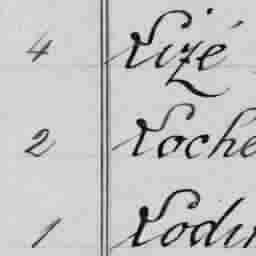 4 Lizé
2 Loche
1 Lodin